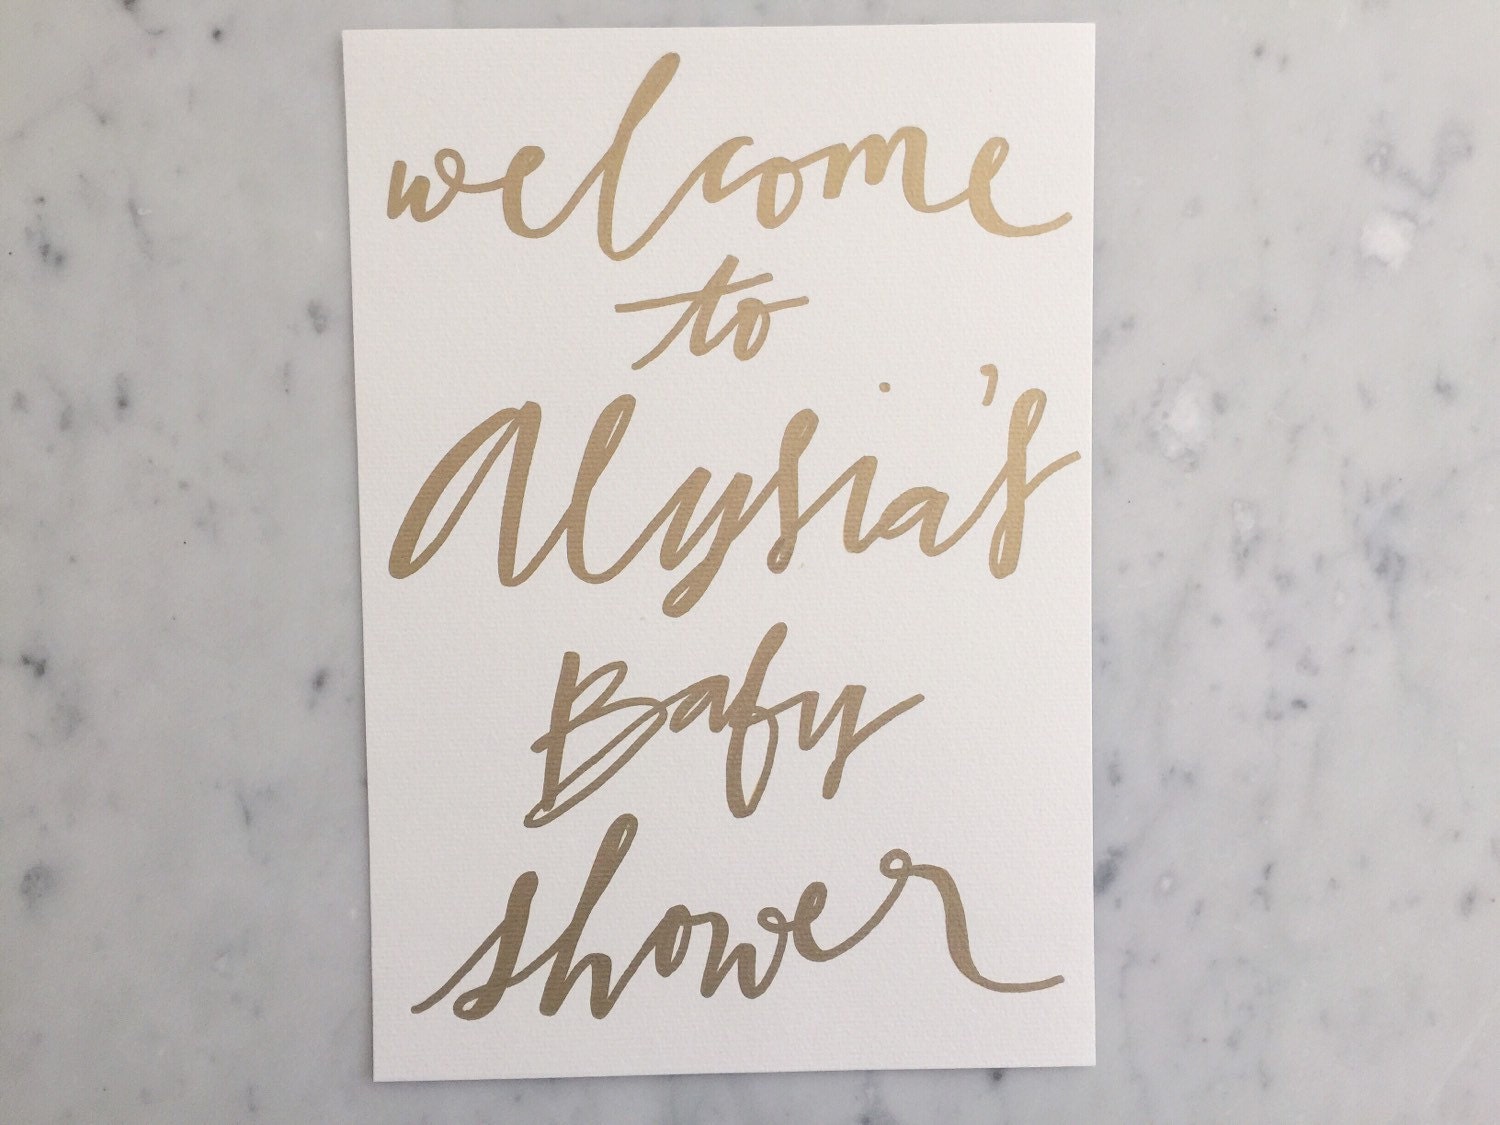 welcome
to
Alysia's
Baby
shower